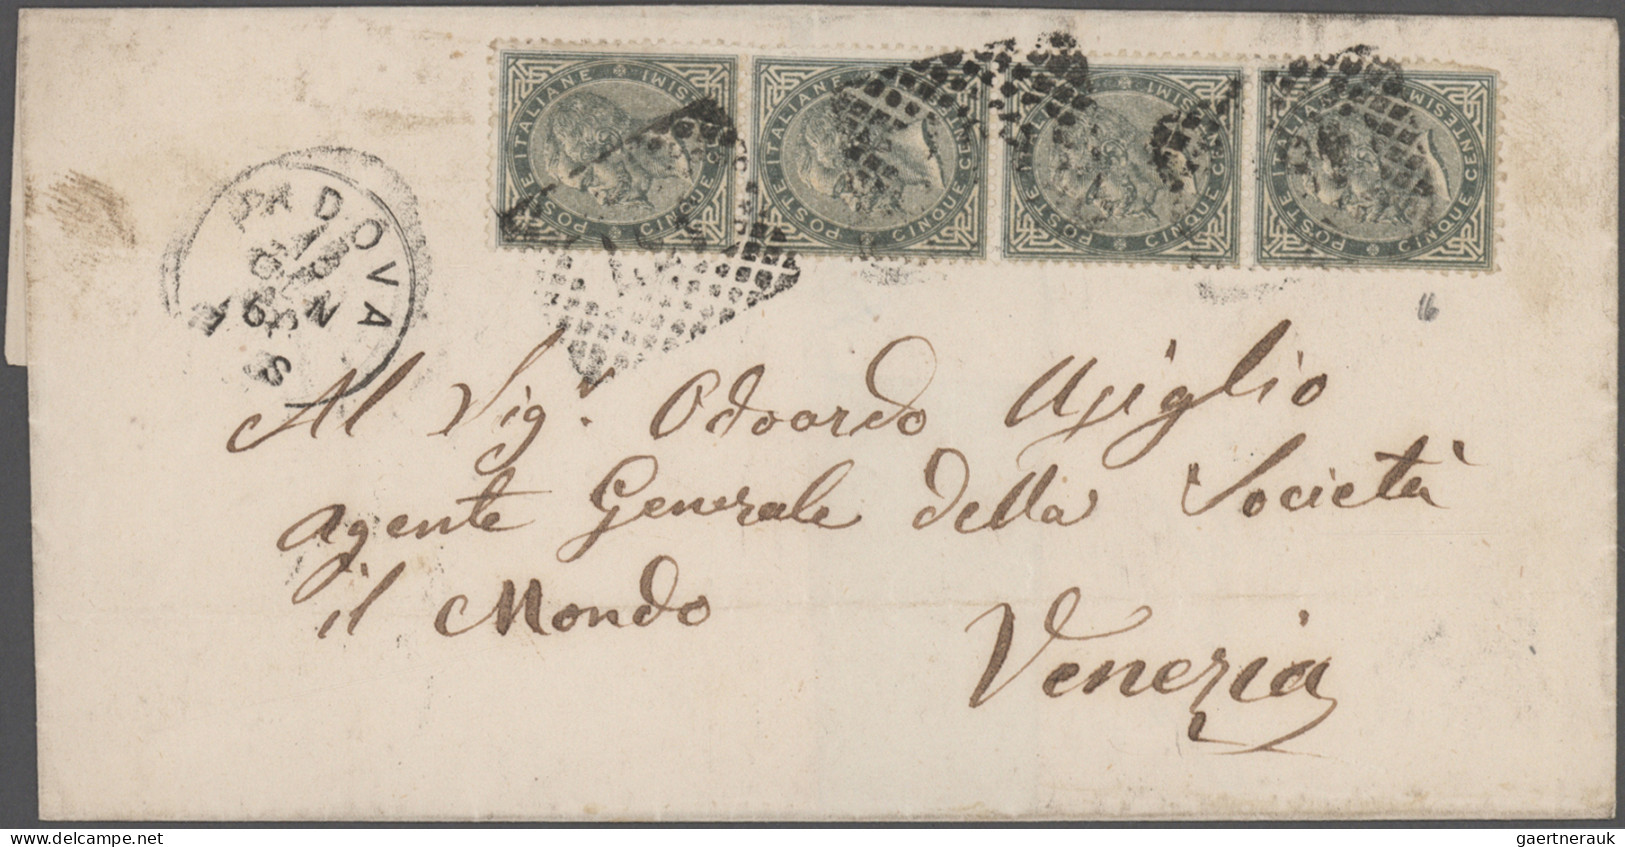 POSTE ITALIANE CINQUE CENTESIMI
POSTE ITALIANE CINQUE CENTESIMI
POSTE ITALIANE CINQUE CENTESIMI
POSTE ITALIANE CINQUE CENTESIMI
PADOVA
13
16
Al Sigr. Odoardo Usiglio
agente Generale della Società
il Mondo
Venezia
gaertnerauk